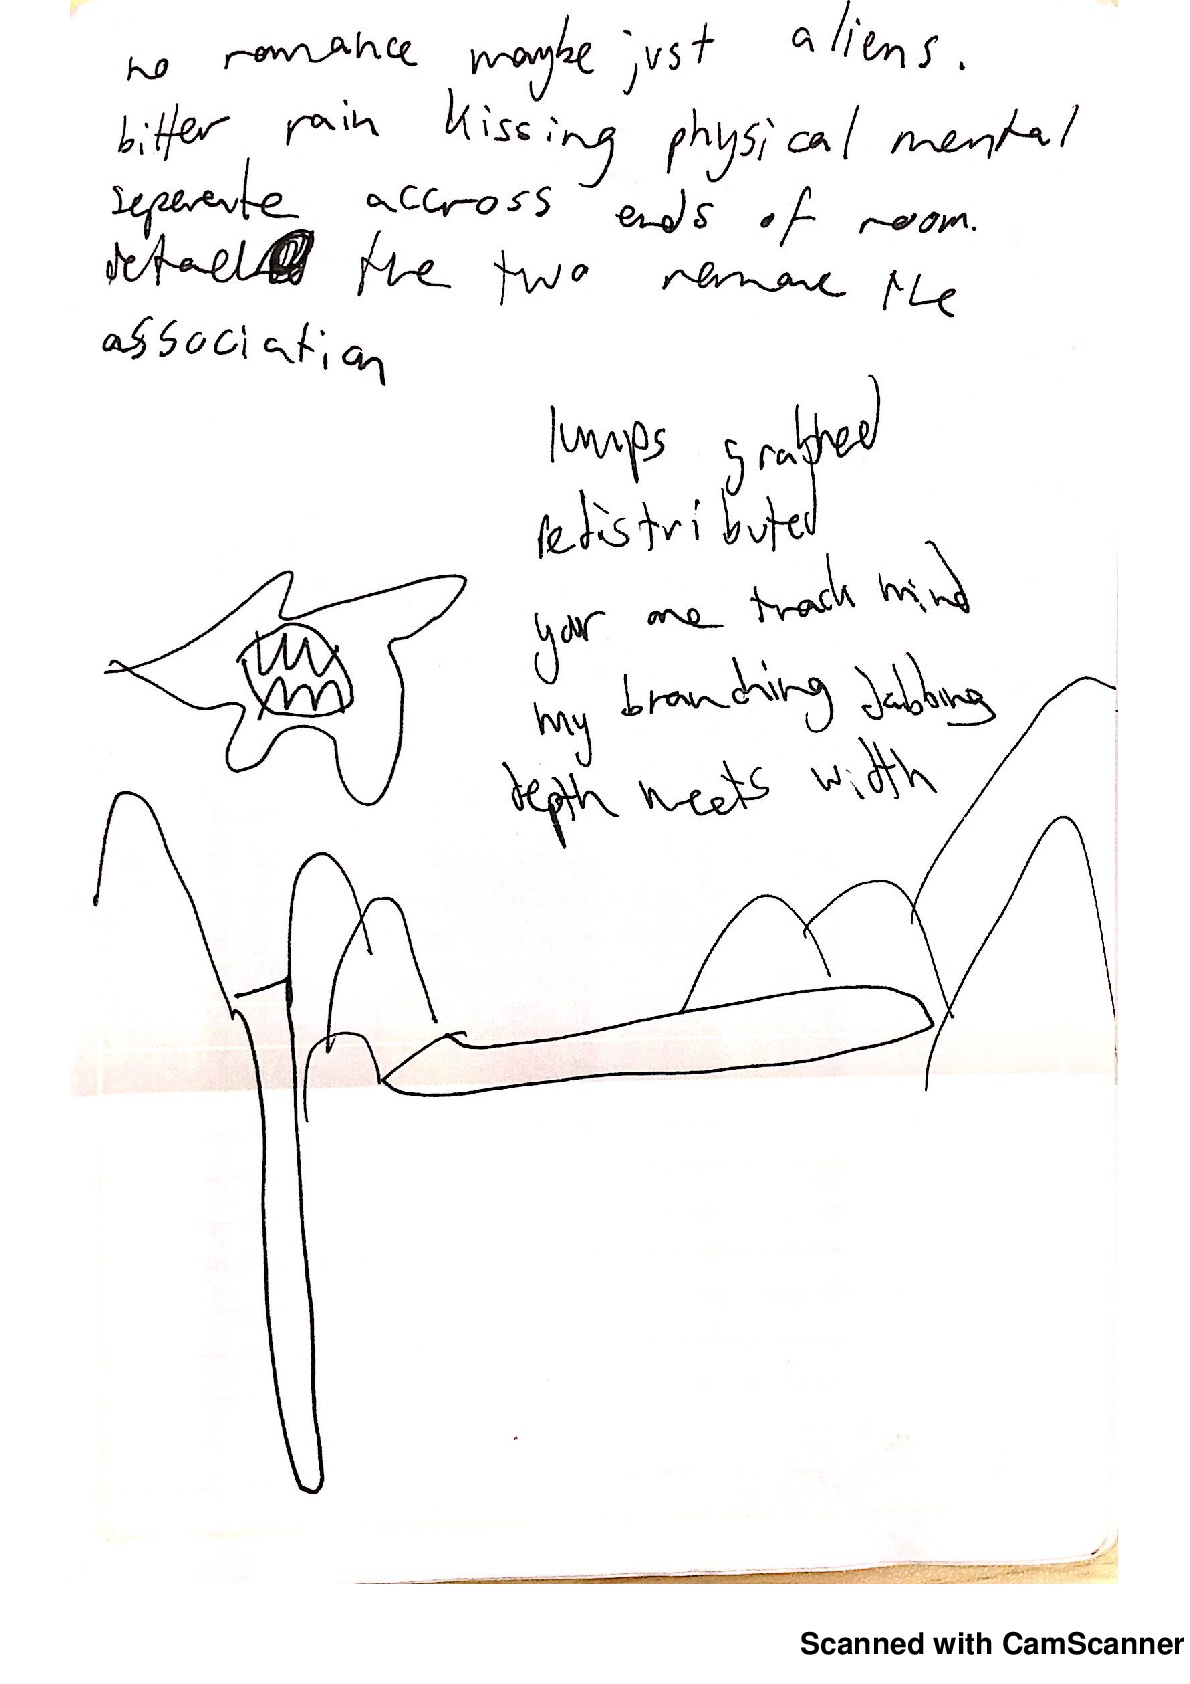 no romance maybe just aliens.
bitter rain kissing physical mental
seperente accross ends of room.
detail the two remove the
association
lumps grabbed
redistributed
your one track mind
my branching dabbing
depth meets width
Scanned with CamScanner